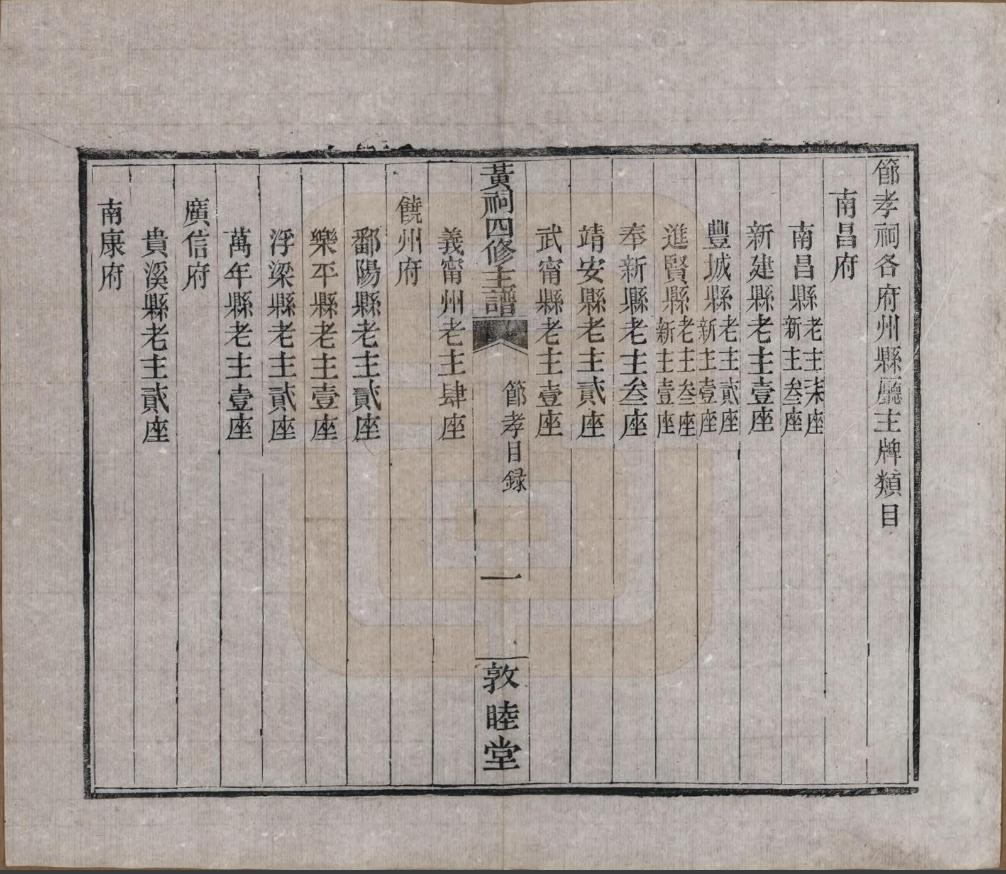 節孝祠各府州縣廳主牌類目
南昌府
南昌縣老主柒座
新主叁座
新建縣老主壹座
豐城縣老主貳座
新主壹座
進賢縣老主叁座
新主壹座
奉新縣老主叁座
靖安縣老主貳座
武甯縣老主壹座
黃祠四修主譜
節孝目録
一
敦睦堂
義甯州老主肆座
饒州府
鄱陽縣老主貳座
樂平縣老主壹座
浮梁縣老主貳座
萬年縣老主壹座
廣信府
貴溪縣老主貳座
南康府